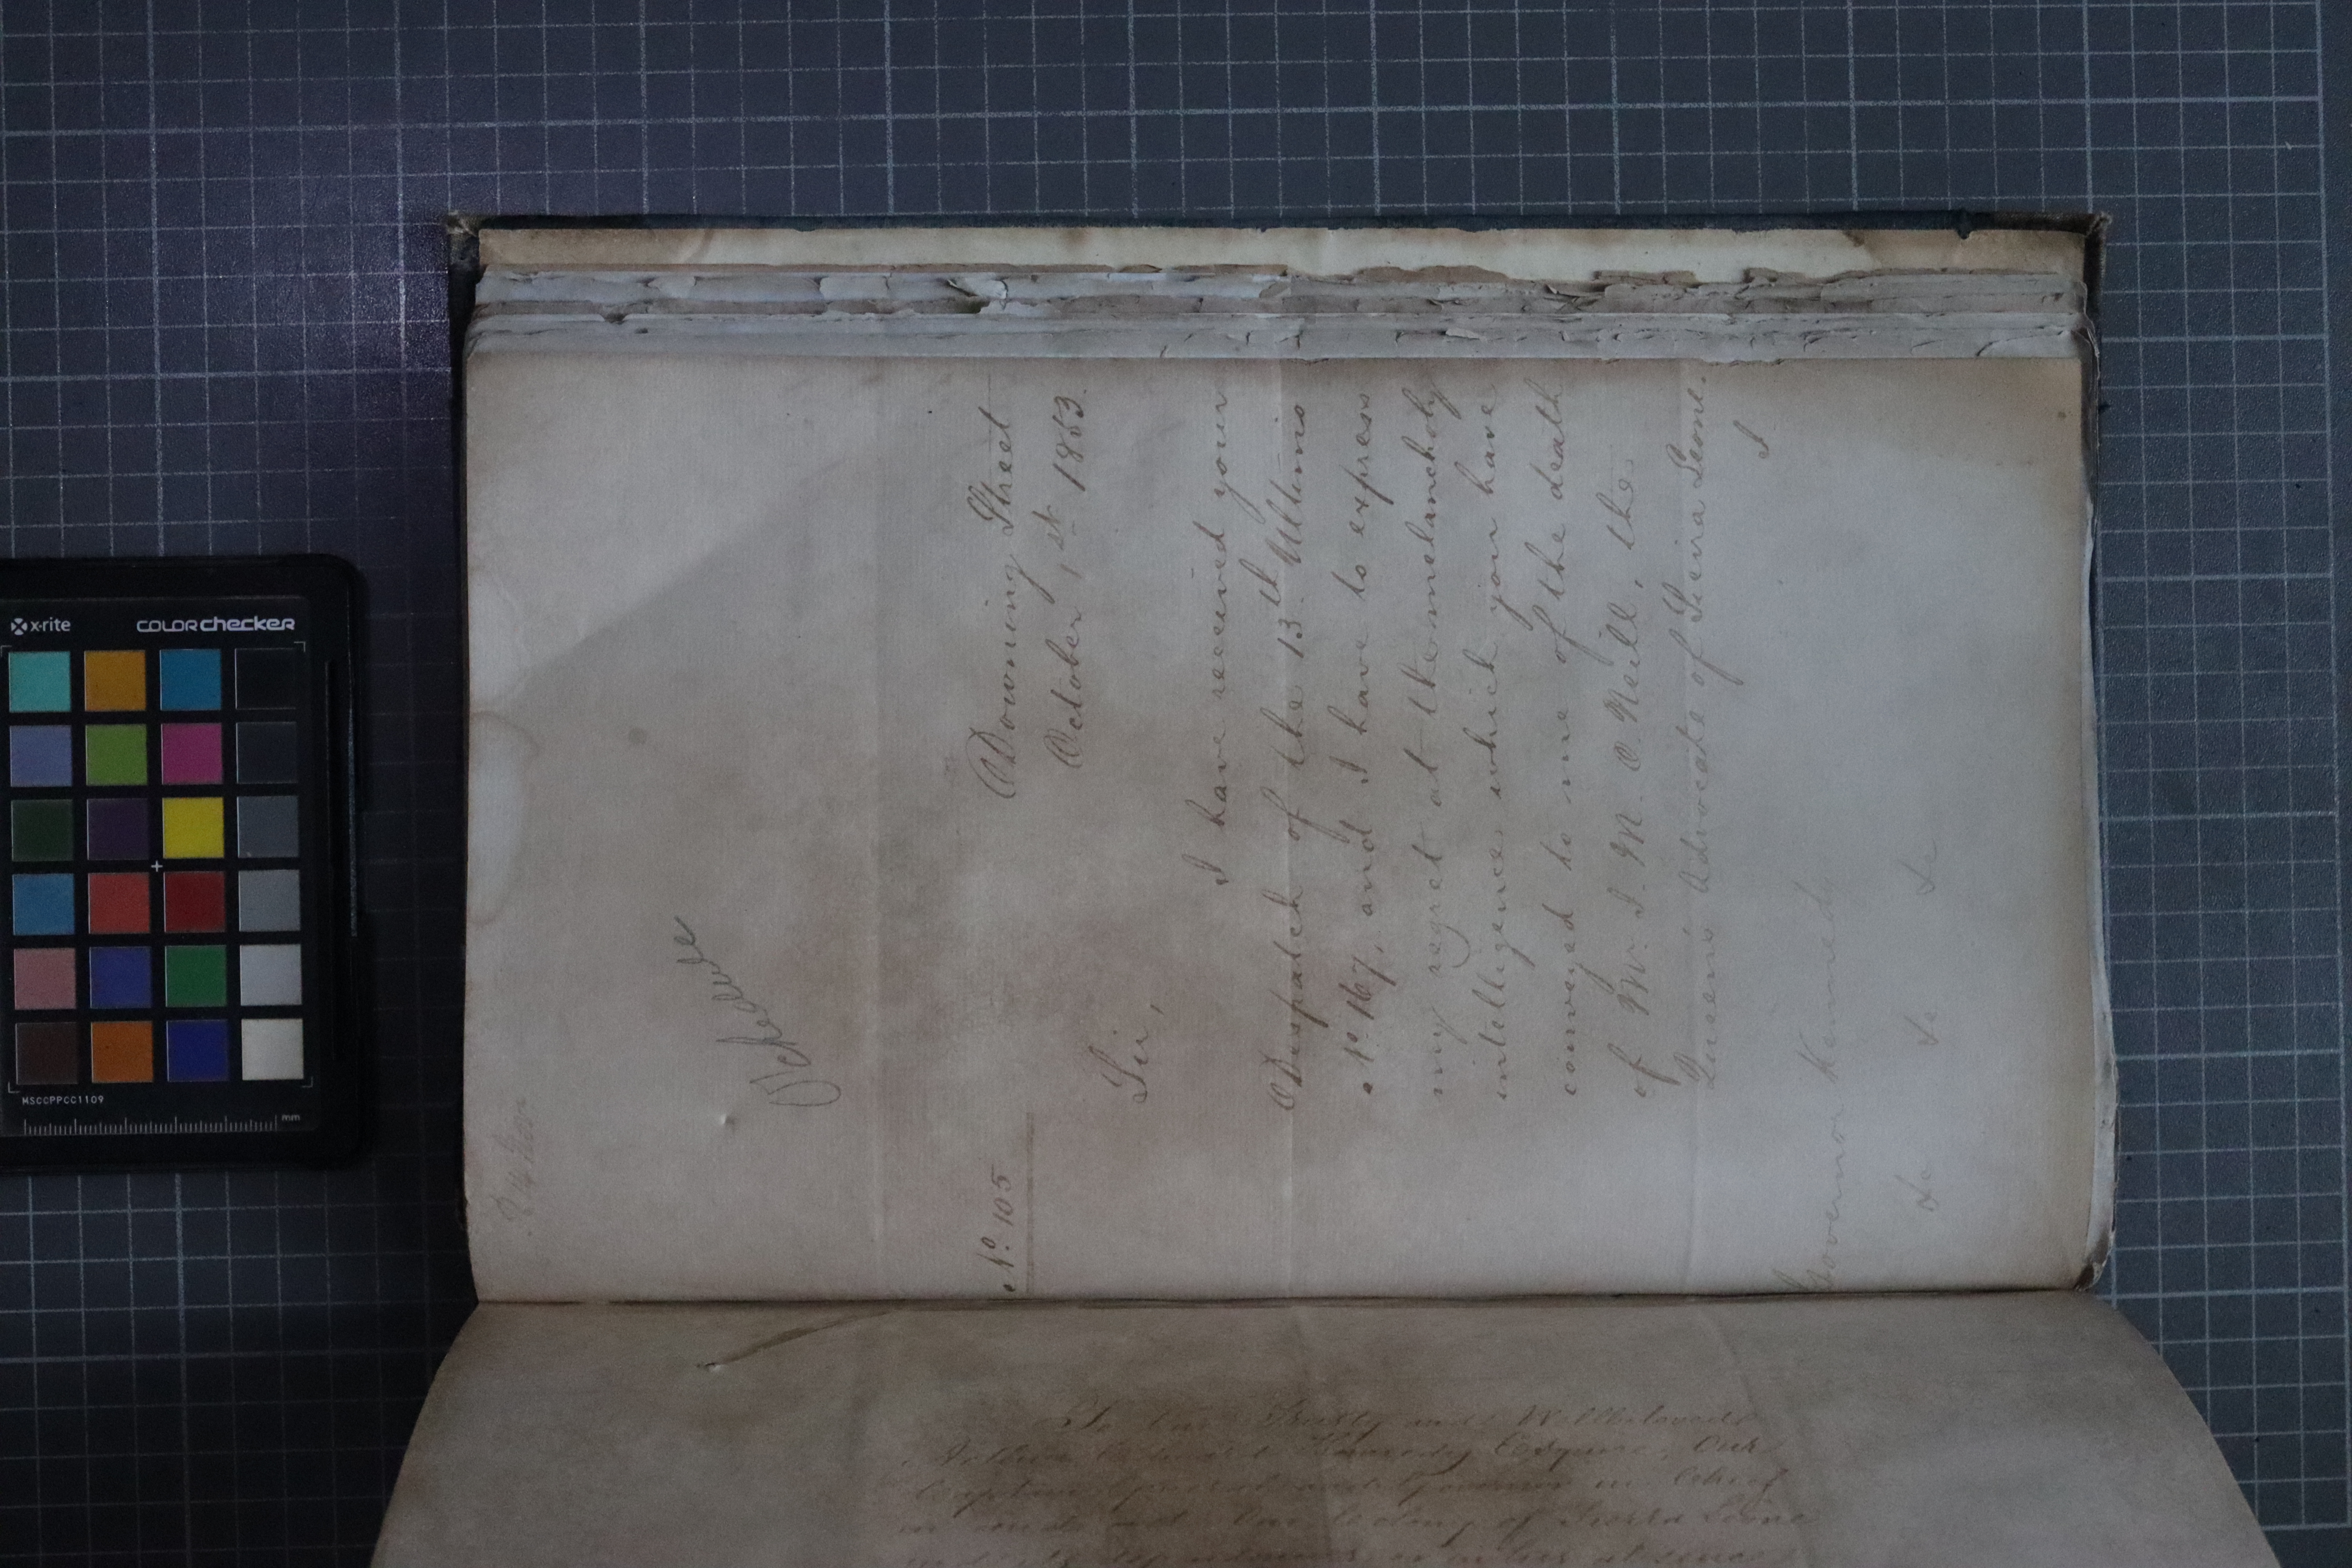 No. 105
Downing Street
October, 1st 1853.
Sir,
I have received your
Despatch of the 13th Ultimo
No. 167, and I have to express
my regret at the melancholy
intelligence which you have
conveyed to me of the death
of Mr. J. M. O'Neill, the
Queen's Advocate of Seirra Leone.
I
Governor Kennedy
&c &c &c
To Our Trusty and Wellbeloved
Arthur Edward Kennedy Esquire, Our
Captain General and Governor in Chief
in and over Our Colony of Sierra Leone
and its Dependencies or in his absence
x-rite
colorchecker
MSCCPPCC1109
mm